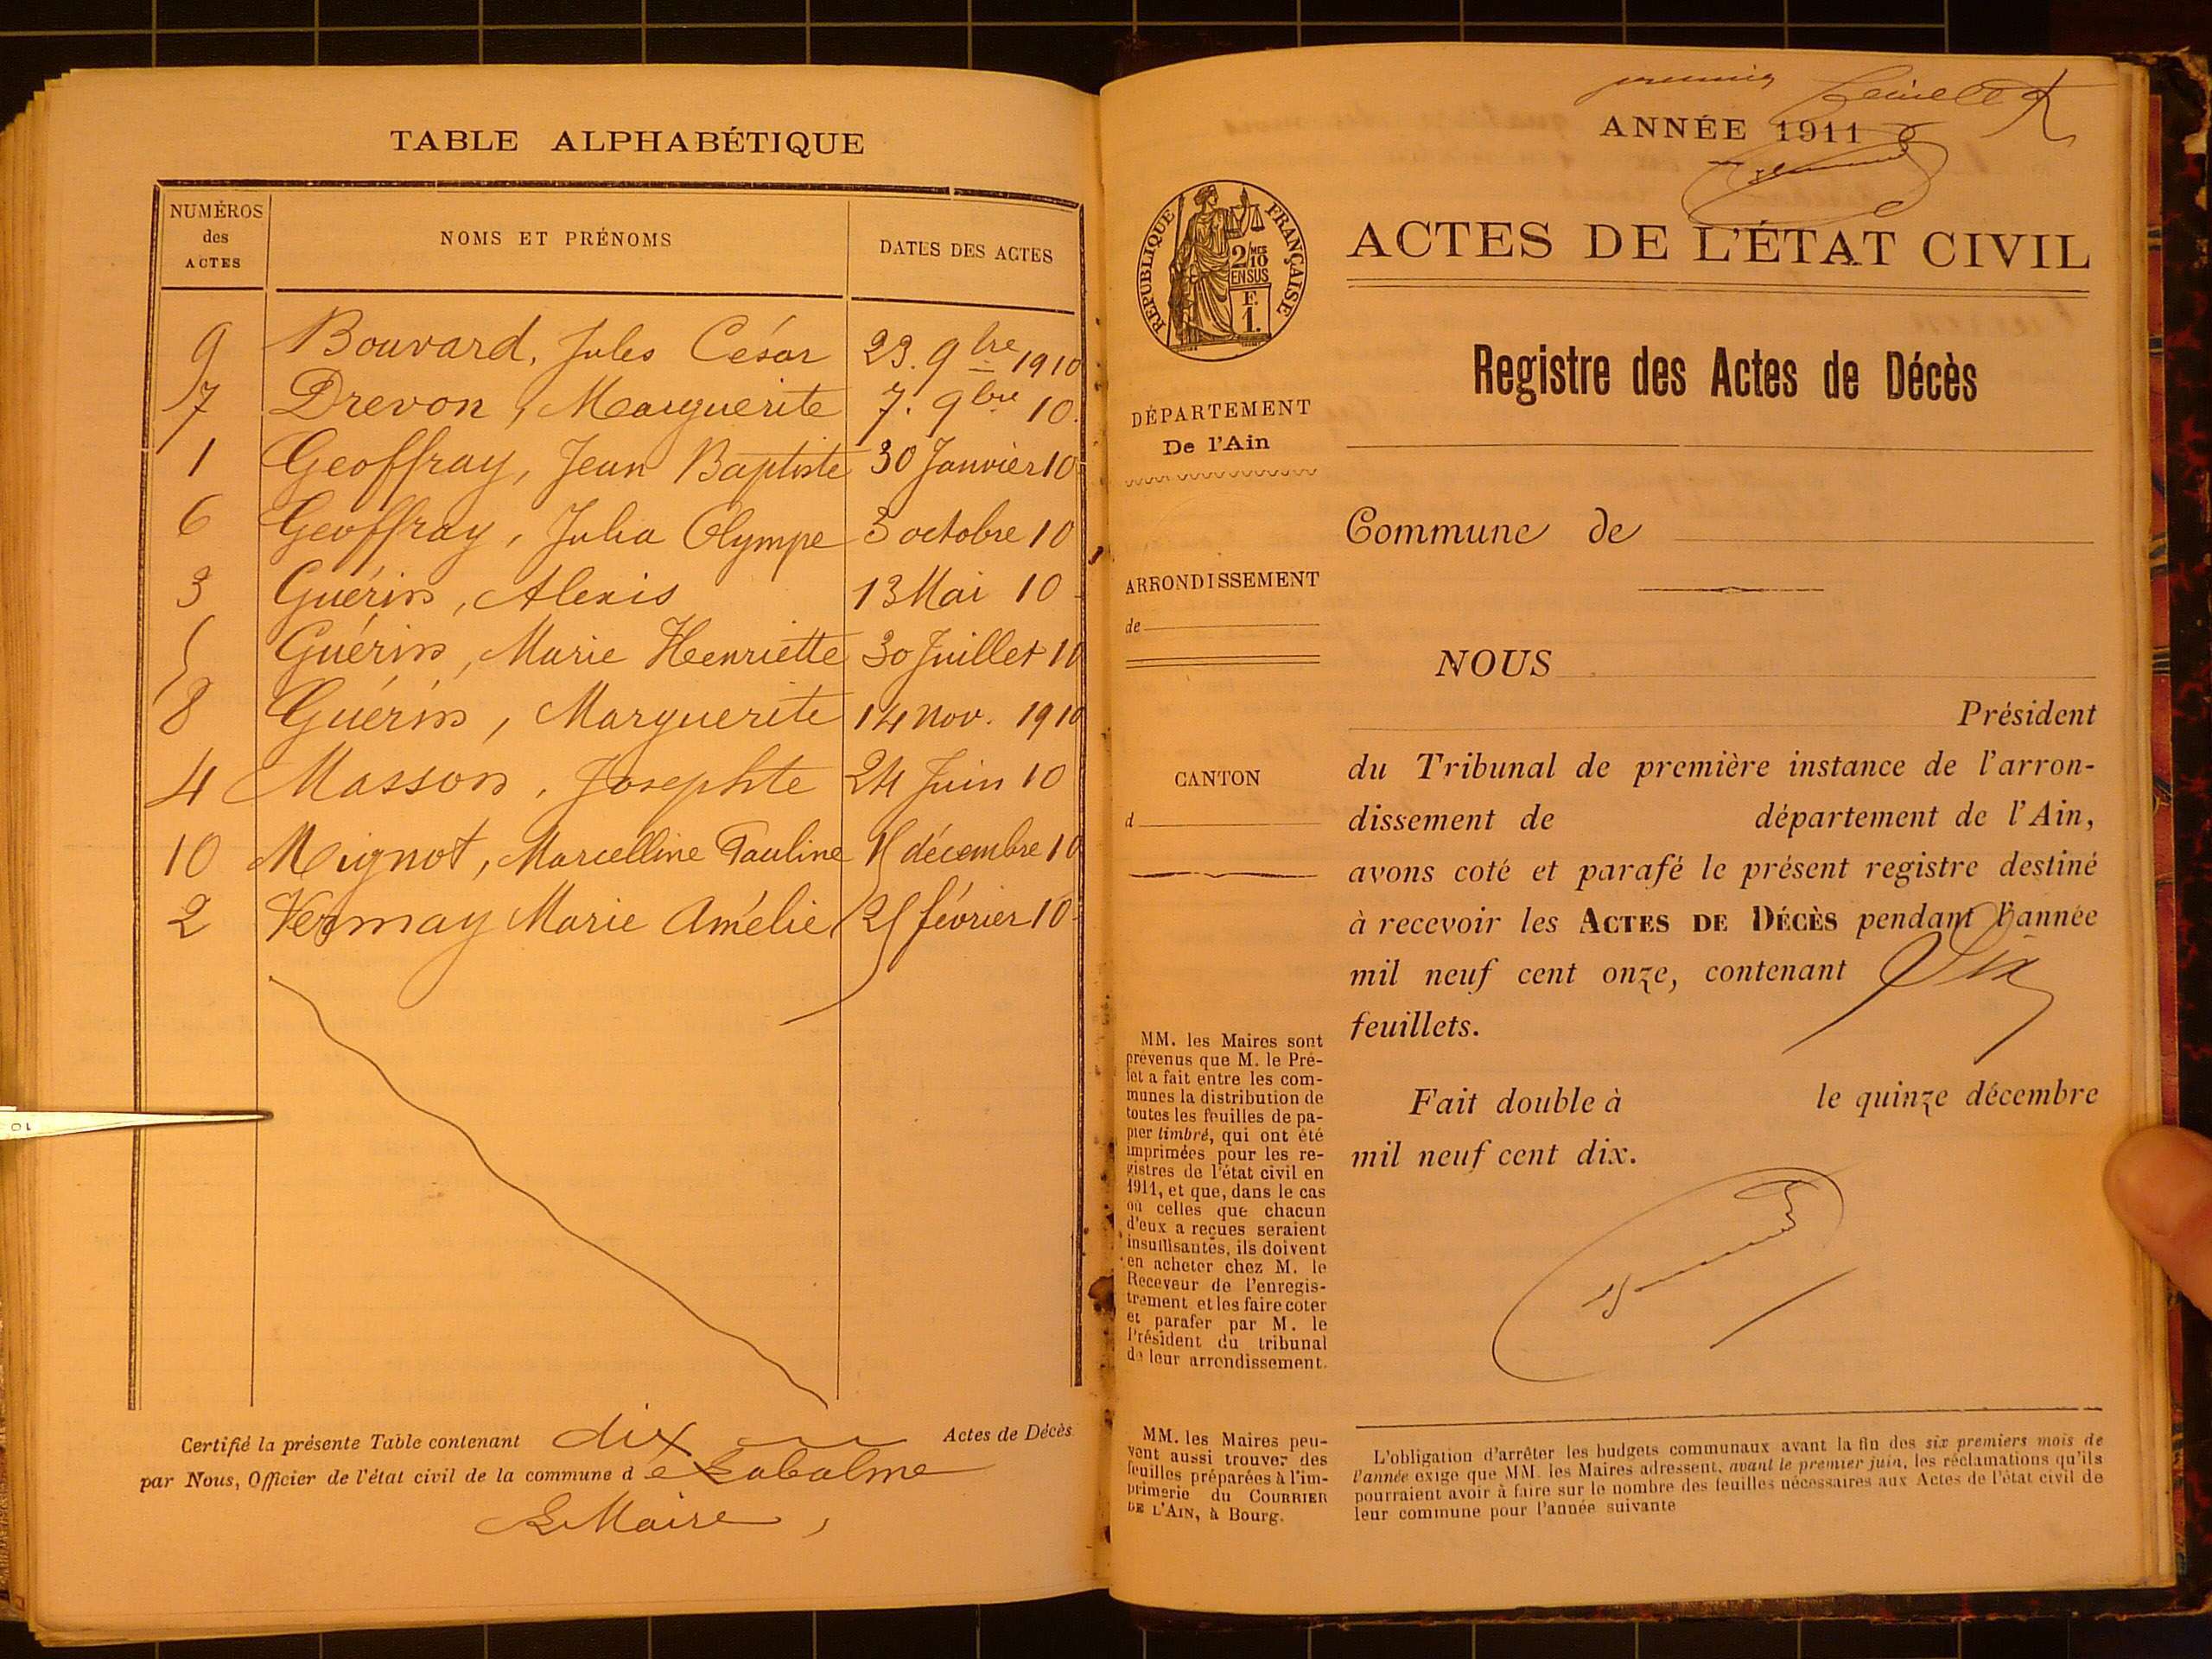 TABLE ALPHABÉTIQUE
NUMÉROS
des
ACTES
NOMS ET PRÉNOMS
DATES DES ACTES
9 Bouvard, Jules César 23. 9bre 1910
7 Drevon, Marguerite 7. 9bre 10.
1 Geoffray, Jean Baptiste 30 Janvier 10
6 Geoffray, Julia Olympe 3 octobre 10
3 Guérin, Alexis 13 Mai 10
5 Guérin, Marie Henriette 30 Juillet 10
8 Guérin, Marguerite 14 nov. 1910
4 Masson, Josephte 24 Juin 10
10 Mignot, Marcelline Pauline 15 décembre 10
2 Vernay Marie Amélie 25 février 10
Certifié la présente Table contenant dix Actes de Décès
par Nous, Officier de l'état civil de la commune de Labalme
Le Maire,
premier
ANNÉE 1911
RÉPUBLIQUE FRANÇAISE
2/10 MES
EN SUS
F.
1.
ACTES DE L'ÉTAT CIVIL
Registre des Actes de Décès
DÉPARTEMENT
De l'Ain
ARRONDISSEMENT
de
CANTON
d
Commune de
NOUS
Président
du Tribunal de première instance de l'arron-
dissement de département de l'Ain,
avons coté et parafé le présent registre destiné
à recevoir les ACTES DE DÉCÈS pendant l'année
mil neuf cent onze, contenant Six
feuillets.
Fait double à le quinze décembre
mil neuf cent dix.
MM. les Maires sont
prévenus que M. le Pré-
fet a fait entre les com-
munes la distribution de
toutes les feuilles de pa-
pier timbré, qui ont été
imprimées pour les re-
gistres de l'état civil en
1911, et que, dans le cas
où celles que chacun
d'eux a reçues seraient
insuffisantes, ils doivent
en acheter chez M. le
Receveur de l'enregis-
trement et les faire coter
et parafer par M. le
Président du tribunal
de leur arrondissement.
MM. les Maires peu-
vent aussi trouver des
feuilles préparées à l'im-
primerie du COURRIER
DE L'AIN, à Bourg.
L'obligation d'arrêter les budgets communaux avant la fin des six premiers mois de
l'année exige que MM. les Maires adressent, avant le premier juin, les réclamations qu'ils
pourraient avoir à faire sur le nombre des feuilles nécessaires aux Actes de l'état civil de
leur commune pour l'année suivante